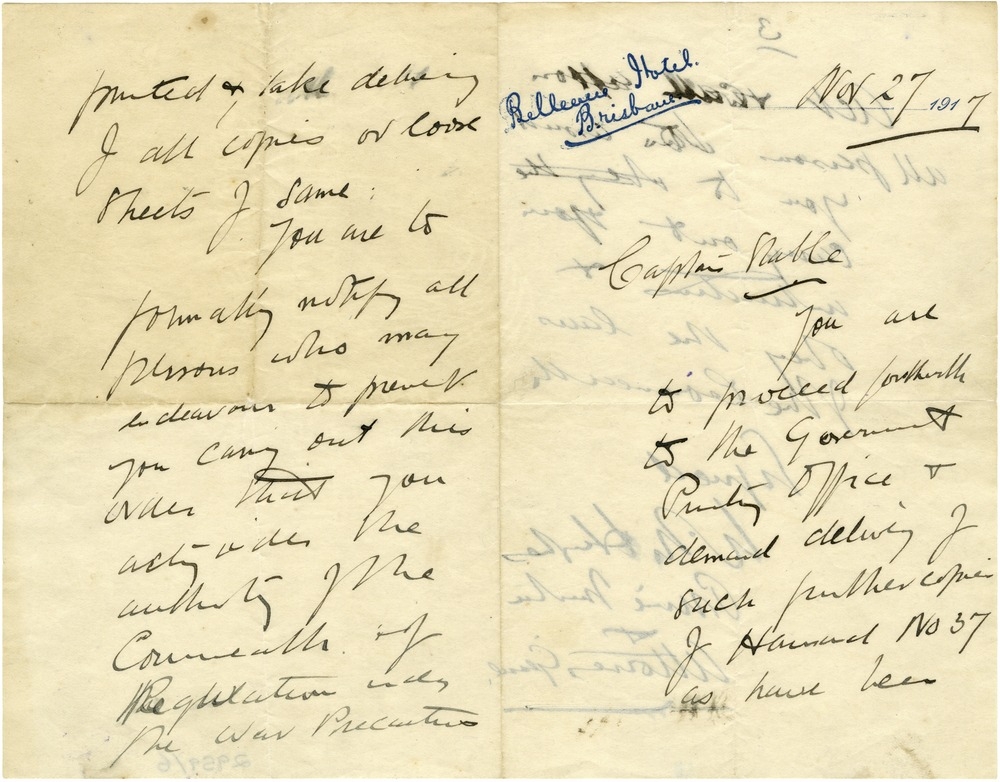 Bellevue Hotel.
Brisbane
Nov 27 1917
Captain Stable
You are
to proceed forthwith
to the Government
Printing Office &
demand delivery of
such further copies
of Hansard No 37
as have been
printed & take delivery
of all copies or loose
sheets of same.
You are to
formally notify all
persons who may
endeavour to prevent
you carry out this
order that you
act under the
authority of the
Commealth of
Regulation under
the War Precautions